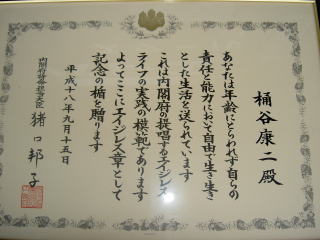 桶谷康二殿
あなたは年齢にとらわれず自らの
責任と能力において自由で生き生き
とした生活を送られています
これは内閣府の提唱するエイジレス
ライフの実践の模範であります
よってここにエイジレス章として
記念の楯を贈ります
平成十八年九月十五日
内閣府特命担当大臣 猪口邦子